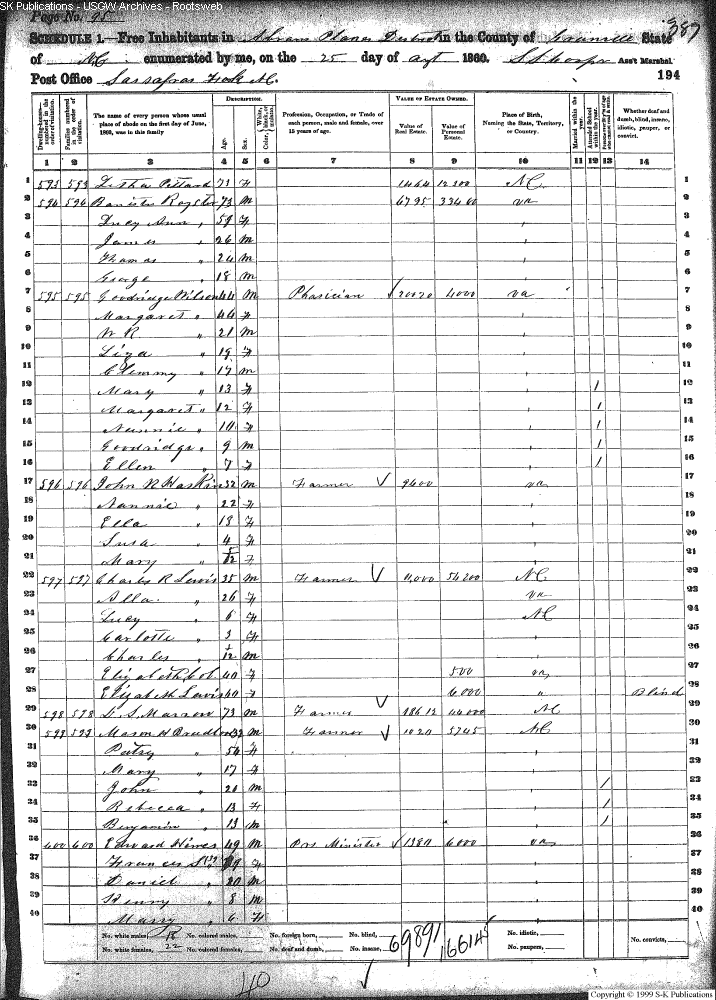 SK Publications - USGW Archives - Rootsweb
Page No. 95
387
SCHEDULE 1.—Free Inhabitants in Abrams Plains District in the County of Granville State
of NC enumerated by me, on the 25 day of Augt 1860. Ass't Marshal.
Post Office Sassafras Fork NC. 194
DESCRIPTION. VALUE OF ESTATE OWNED.
Dwelling-houses—numbered in the order of visitation. Families numbered in the order of visitation. The name of every person whose usual place of abode on the first day of June, 1860, was in this family Age. Sex. Color, Profession, Occupation, or Trade of each person, male and female, over 15 years of age. Value of Real Estate. Value of Personal Estate. Place of Birth, Naming the State, Territory, or Country. Married within the year. Attended School within the year. Whether deaf and dumb, blind, insane, idiotic, pauper, or convict.
1 2 3 4 5 6 7 8 9 10 11 12 13 14
1 593 593 Pittard 73 F 1464 12300 NC 1
2 594 594 Banister Royster 73 M 6795 33400 Va 2
3 Lucy Ann " 59 F " 3
4 James " 26 M " 4
5 Thomas " 24 M " 5
6 George " 18 M " 6
7 595 595 Goodridge Wilson 44 M Phasician 4000 Va 7
8 Margaret " 44 F " 8
9 W R " 21 M " 9
10 Liza " 19 F " 10
11 Clemmy " 17 M " 11
12 Mary " 13 F " 1 12
13 Margaret " 12 F " 1 13
14 Nannie " 10 F " 1 14
15 Goodridge " 9 M " 1 15
16 Ellen " 7 F " 1 16
17 596 596 John R Haskins 32 M Farmer 9400 Va 17
18 Nannie " 22 F " 18
19 Ella " 13 F " 19
20 Susa " 4 F " 20
21 Mary " 5/12 F " 21
22 597 597 Charles R Lewis 35 M Farmer 11,000 54200 NC 22
23 Alla " 26 F Va 23
24 Lucy " 6 F NC 24
25 Carlotte " 3 F " 25
26 Charles " 1/12 M " 26
27 Elizabeth 40 F 500 Va 27
28 Elizabeth Lewis 60 F 6000 " Blind 28
29 598 598 S. Marrow 73 M Farmer 18612 44000 NC 29
30 599 599 Mason H 32 M Farmer 1020 5745 NC 30
31 Patsy " 54 F " 31
32 Mary " 17 F " 32
33 John " 20 M " 1 33
34 Rebecca " 13 F " 1 34
35 Benjamin " 13 M " 1 35
36 600 600 Edward Hines 49 M Minister 1380 6000 Va 36
37 Frances F " 37
38 Daniel " 20 M " 38
39 Henny " 8 M " 39
40 Marry " 6 F " 40
No. white males, 18 No. colored males, No. foreign born, No. blind, 69891 166145 No. idiotic,
No. white females, 22 No. colored females, No. deaf and dumb, No. insane, No. paupers, No. convicts,
40
Copyright © 1999 S-K Publications